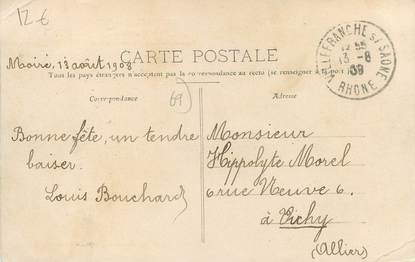 12 €
CARTE POSTALE
Moiré, 13 août 1908
Tous les pays étrangers n'acceptent pas la correspondance au recto (se renseigner à la poste)
VILLEFRANCHE s/ SAONE
13 -8
RHONE
Correspondance
69
Adresse
Bonne fête, un tendre
baiser.
Louis Bouchard
Monsieur
Hippolyte Morel
6 rue Neuve 6.
à Vichy
(Allier)